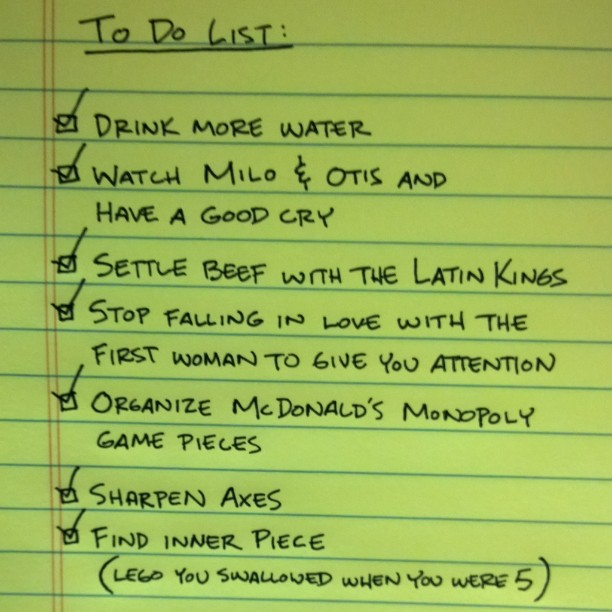 TO DO LIST:
DRINK MORE WATER
WATCH MILO & OTIS AND
HAVE A GOOD CRY
SETTLE BEEF WITH THE LATIN KINGS
STOP FALLING IN LOVE WITH THE
FIRST WOMAN TO GIVE YOU ATTENTION
ORGANIZE MCDONALD'S MONOPOLY
GAME PIECES
SHARPEN AXES
FIND INNER PIECE
(LEGO YOU SWALLOWED WHEN YOU WERE 5)